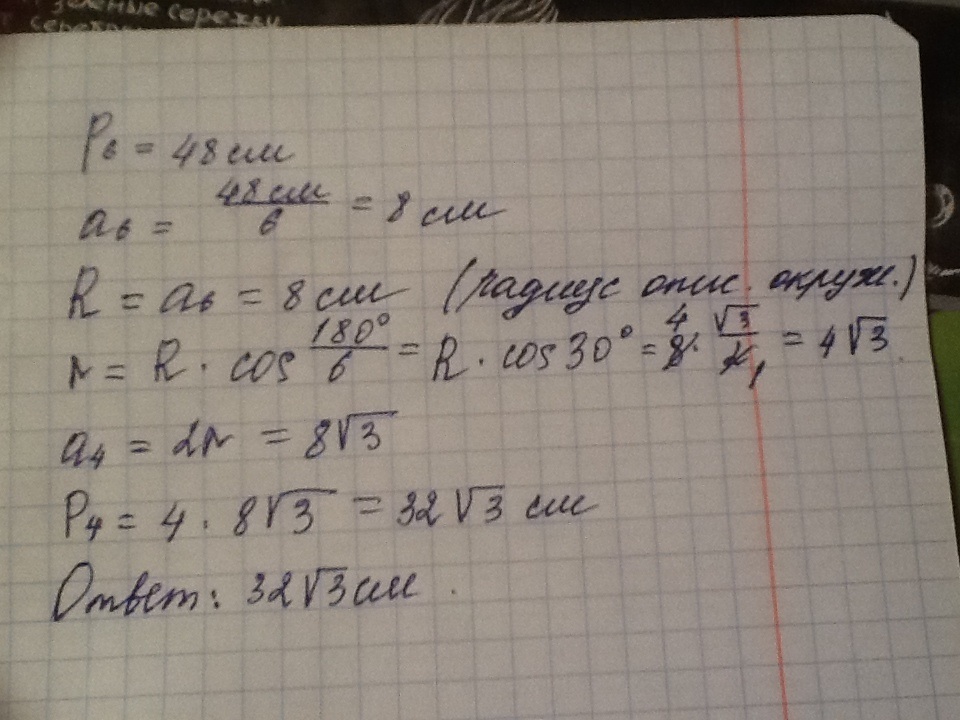 зелёные серёжки
P₆ = 48 см
a₆ = 48 см / 6 = 8 см
R = a₆ = 8 см (радиус опис. окруж.)
r = R · cos 180° / 6 = R · cos 30° = 8 4 · √3 / 2 1 = 4√3
a₄ = 2r = 8√3
P₄ = 4 · 8√3 = 32√3 см
Ответ: 32√3 см.